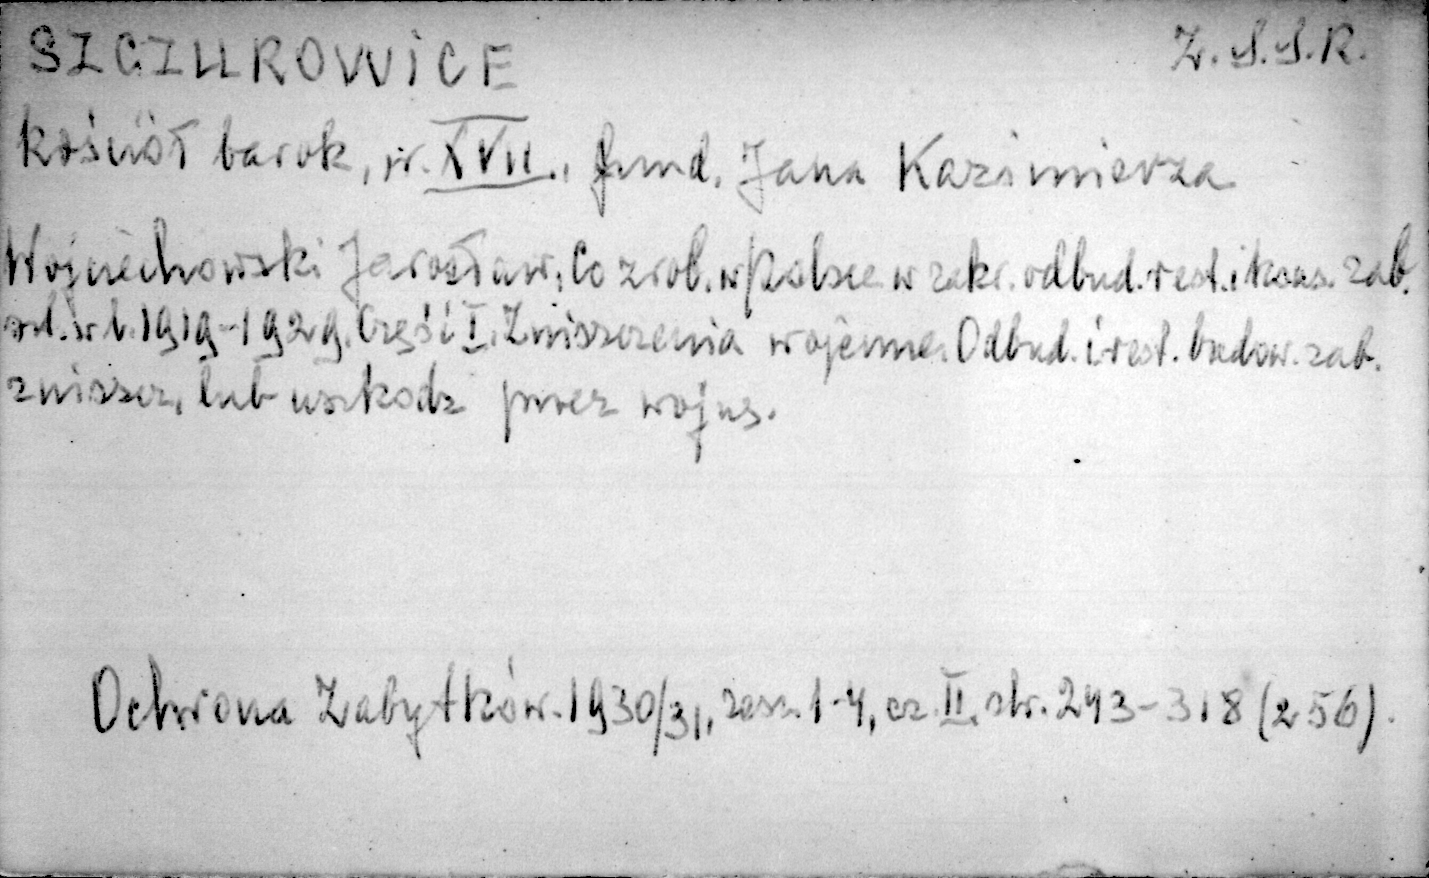 SZCZUROWICE Z.S.S.R.
Kościół barok, w. XVII., fund. Jana Kazimierza
Wojciechowski Jarosław, Co zrob. w Polsce w zakr. odbud. rest. i kons. zab.
w l. 1919-1929. Część I. Zniszczenia wojenne. Odbud. i rest. budow. zab.
zniszcz, lub uszkodz przez wojnę.
Ochrona Zabytków. 1930/31, zesz. 1-4, cz. II, str. 243-318 (256).